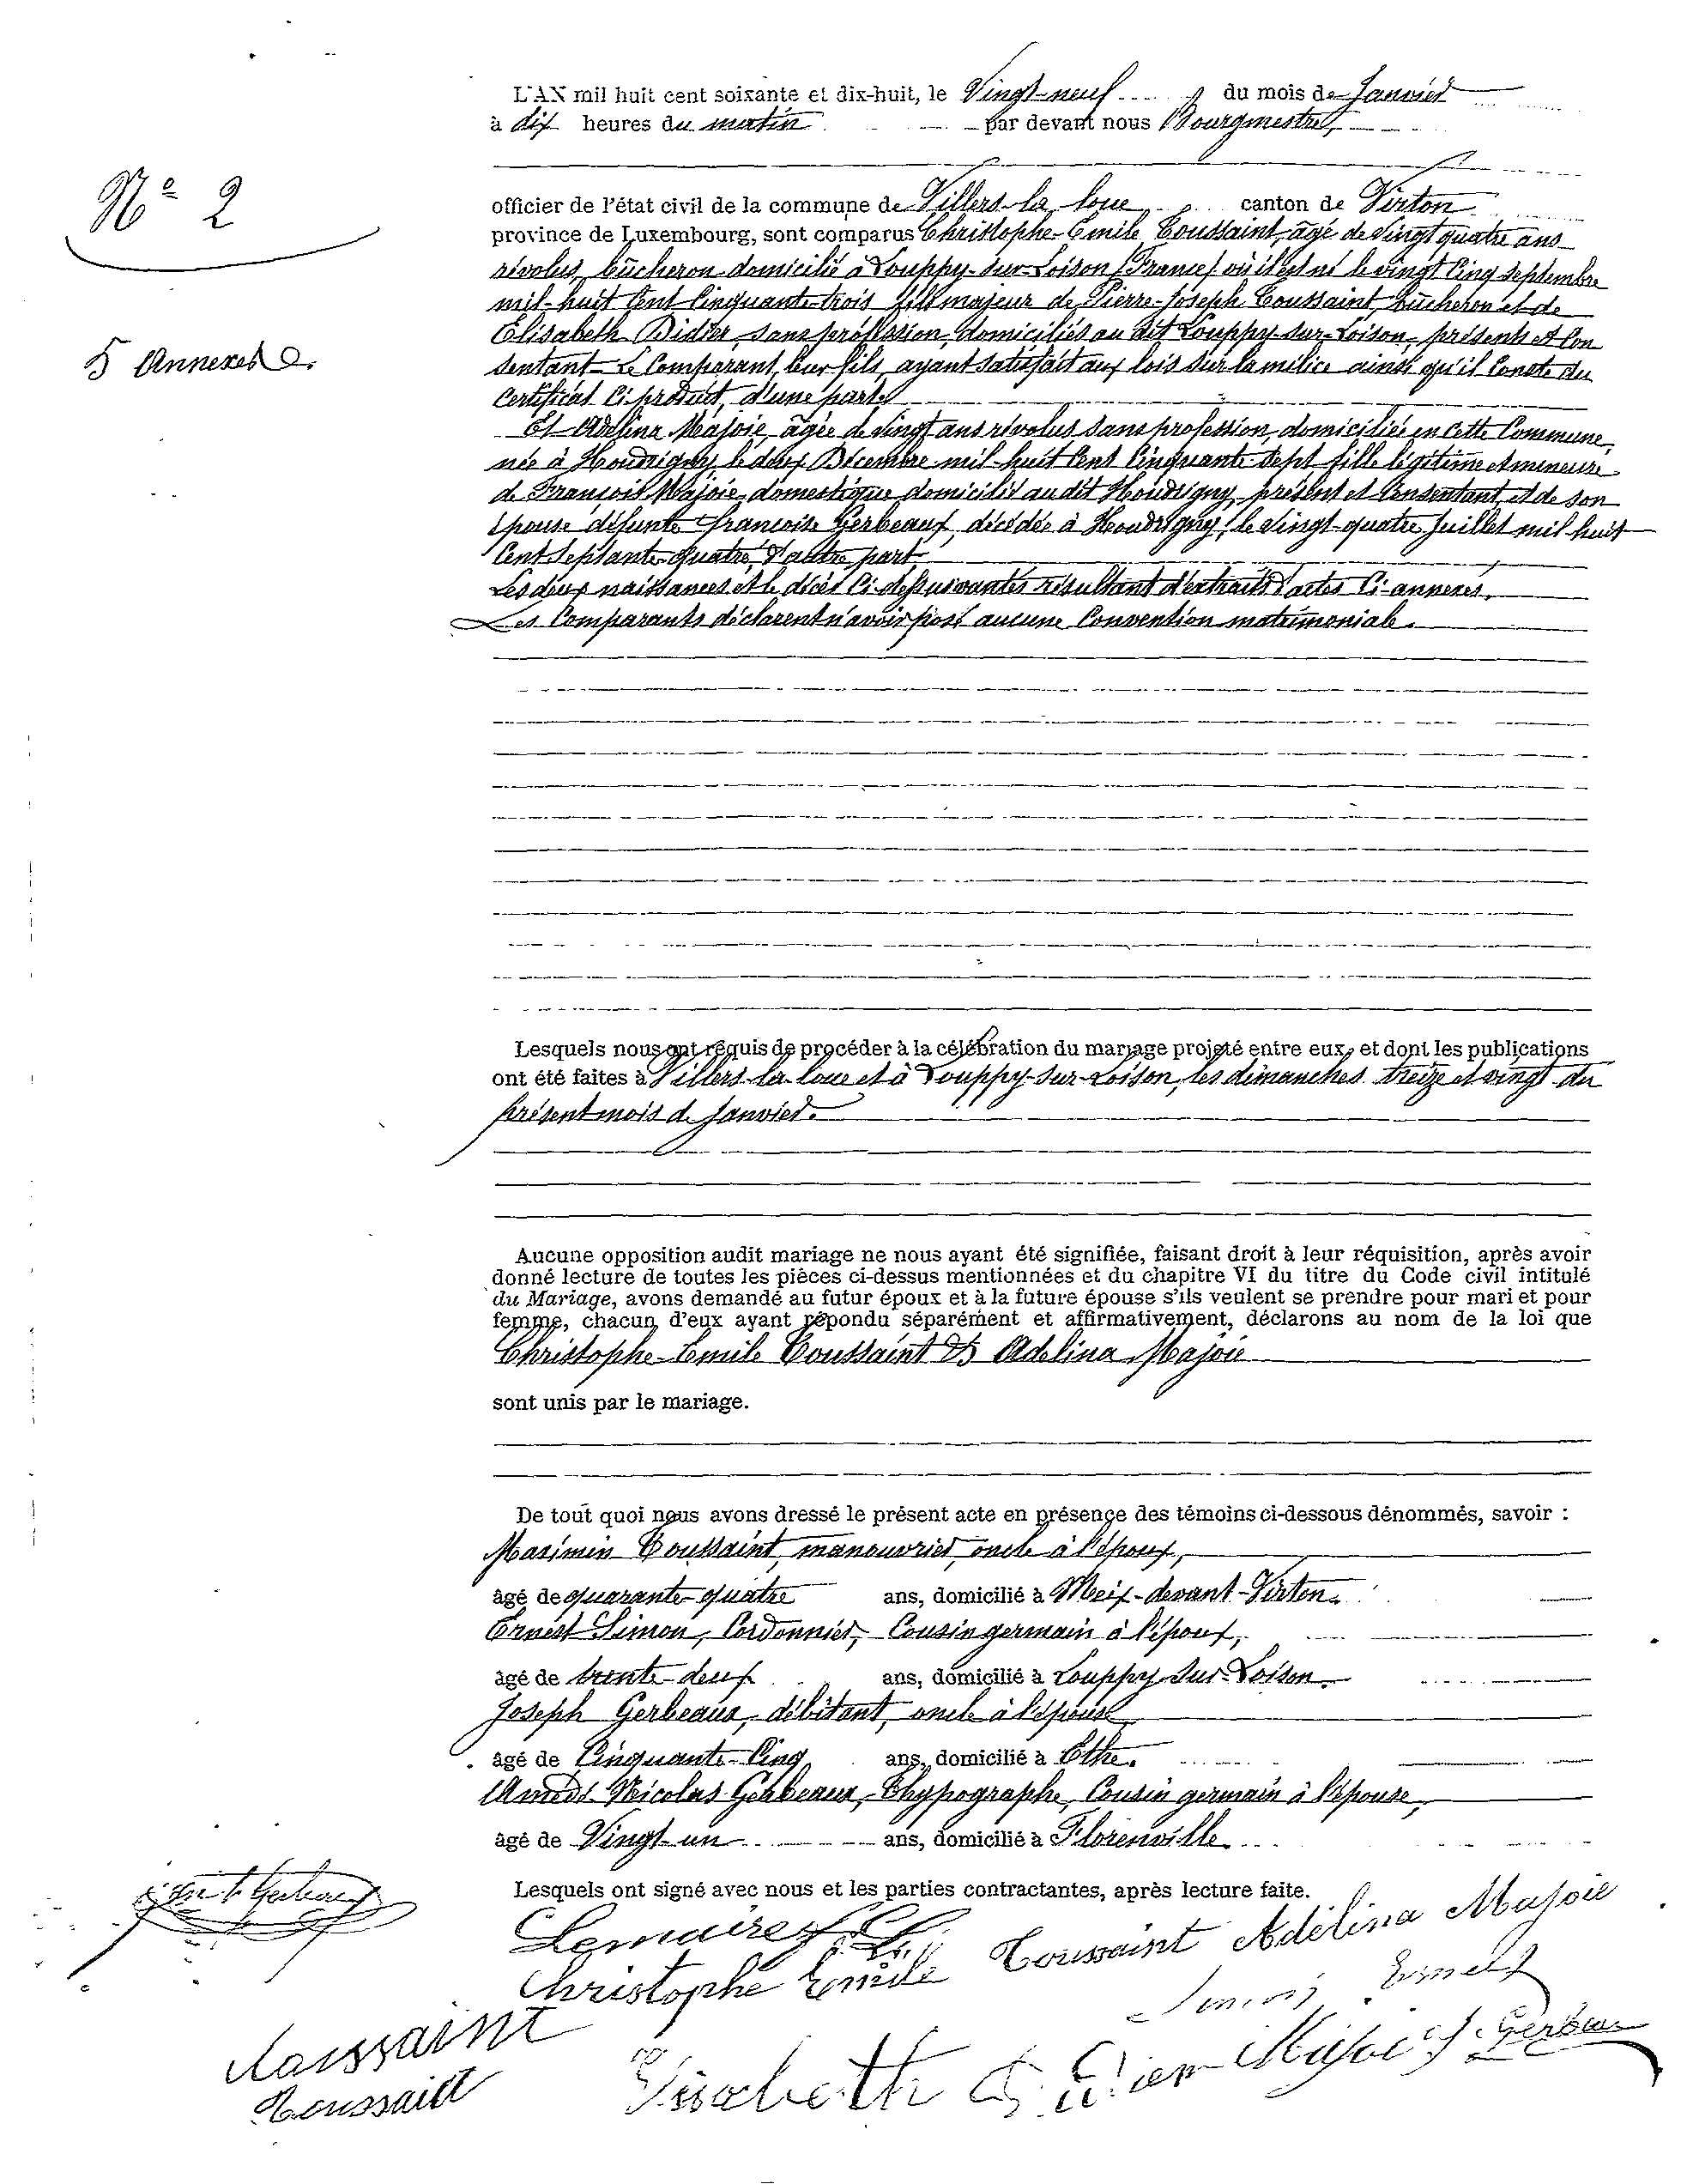 L'AN mil huit cent soixante et dix-huit, le Vingt-neuf du mois de Janvier
à dix heures du matin par devant nous Bourgmestre,
N° 2
officier de l'état civil de la commune de Villers-la-loue canton de Virton
province de Luxembourg, sont comparus Christophe-Emile Toussaint, âgé de vingt quatre ans
révolus, bûcheron domicilié à Louppy-sur-Loison (France) où il est né le vingt cinq septembre
mil-huit cent cinquante-trois fils majeur de Pierre-Joseph Toussaint, bûcheron et de
Elisabeth Didier, sans profession, domiciliés au dit Louppy-sur-Loison, présents et con
5 Annexes
sentant Le comparant, leur fils, ayant satisfait aux lois sur la milice ainsi qu'il conste du
certificat ci produit, d'une part
Et Adelina Majoie, âgée de vingt ans révolus sans profession, domiciliée en cette commune,
née à Houdrigny, le deux Décembre mil-huit cent cinquante-sept, fille légitime et mineure
de François Majoie, domestique domicilié au dit Houdrigny, présent et consentant, et de son
épouse défunte françoise Gerbeaux, décédée à Houdrigny, le vingt-quatre Juillet mil huit
cent septante-quatre, d'autre part
Les deux naissances et le décès ci-dessus vantés résultant d'extraits d'actes ci-annexés.
Les comparants déclarent n'avoir passé aucune convention matrimoniale.
Lesquels nous ont requis de procéder à la célébration du mariage projeté entre eux, et dont les publications
ont été faites à Villers-la-loue et à Louppy-sur-Loison, les dimanches treize et vingt du
présent mois de Janvier.
Aucune opposition audit mariage ne nous ayant été signifiée, faisant droit à leur réquisition, après avoir
donné lecture de toutes les pièces ci-dessus mentionnées et du chapitre VI du titre du Code civil intitulé
du Mariage, avons demandé au futur époux et à la future épouse s'ils veulent se prendre pour mari et pour
femme, chacun d'eux ayant répondu séparément et affirmativement, déclarons au nom de la loi que
Christophe-Emile Toussaint Et Adelina Majoie
sont unis par le mariage.
De tout quoi nous avons dressé le présent acte en présence des témoins ci-dessous dénommés, savoir :
Maximin Toussaint, manouvrier, oncle à l'époux,
âgé de quarante-quatre ans, domicilié à Meix-devant-Virton.
Ernest Simon, Cordonnier, Cousin germain à l'époux,
âgé de trente-deux ans, domicilié à Louppy-sur-Loison.
Joseph Gerbeaux, débitant, oncle à l'épouse
âgé de Cinquante-Cinq ans, domicilié à Ethe.
Amédé Nicolas Gerbeaux, Thypographe, Cousin germain à l'épouse,
âgé de Vingt-un ans, domicilié à Florenville
Lesquels ont signé avec nous et les parties contractantes, après lecture faite.
Lemaire
Christophe Emile Toussaint Adélina Majoie
Simon Ernest
Toussaint
Elisabeth Didier Majoie J Gerbeau
Toussaint